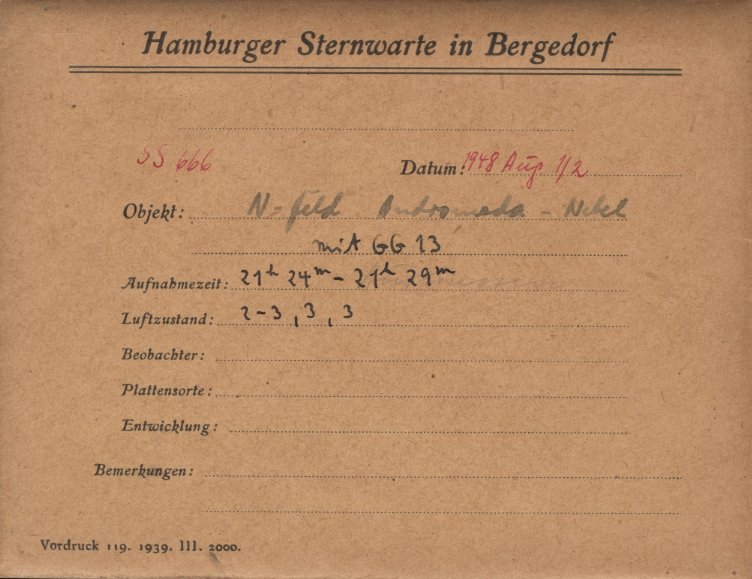 Hamburger Sternwarte in Bergedorf
SS 666 Datum: 1948 Aug. 1/2
Objekt: N-Feld Andromeda-Nebel
mit GG 13
Aufnahmezeit: 21h 24m - 21h 29m
Luftzustand: 2-3, 3, 3
Beobachter:
Plattensorte:
Entwicklung:
Bemerkungen:
Vordruck 119. 1939. III. 2000.